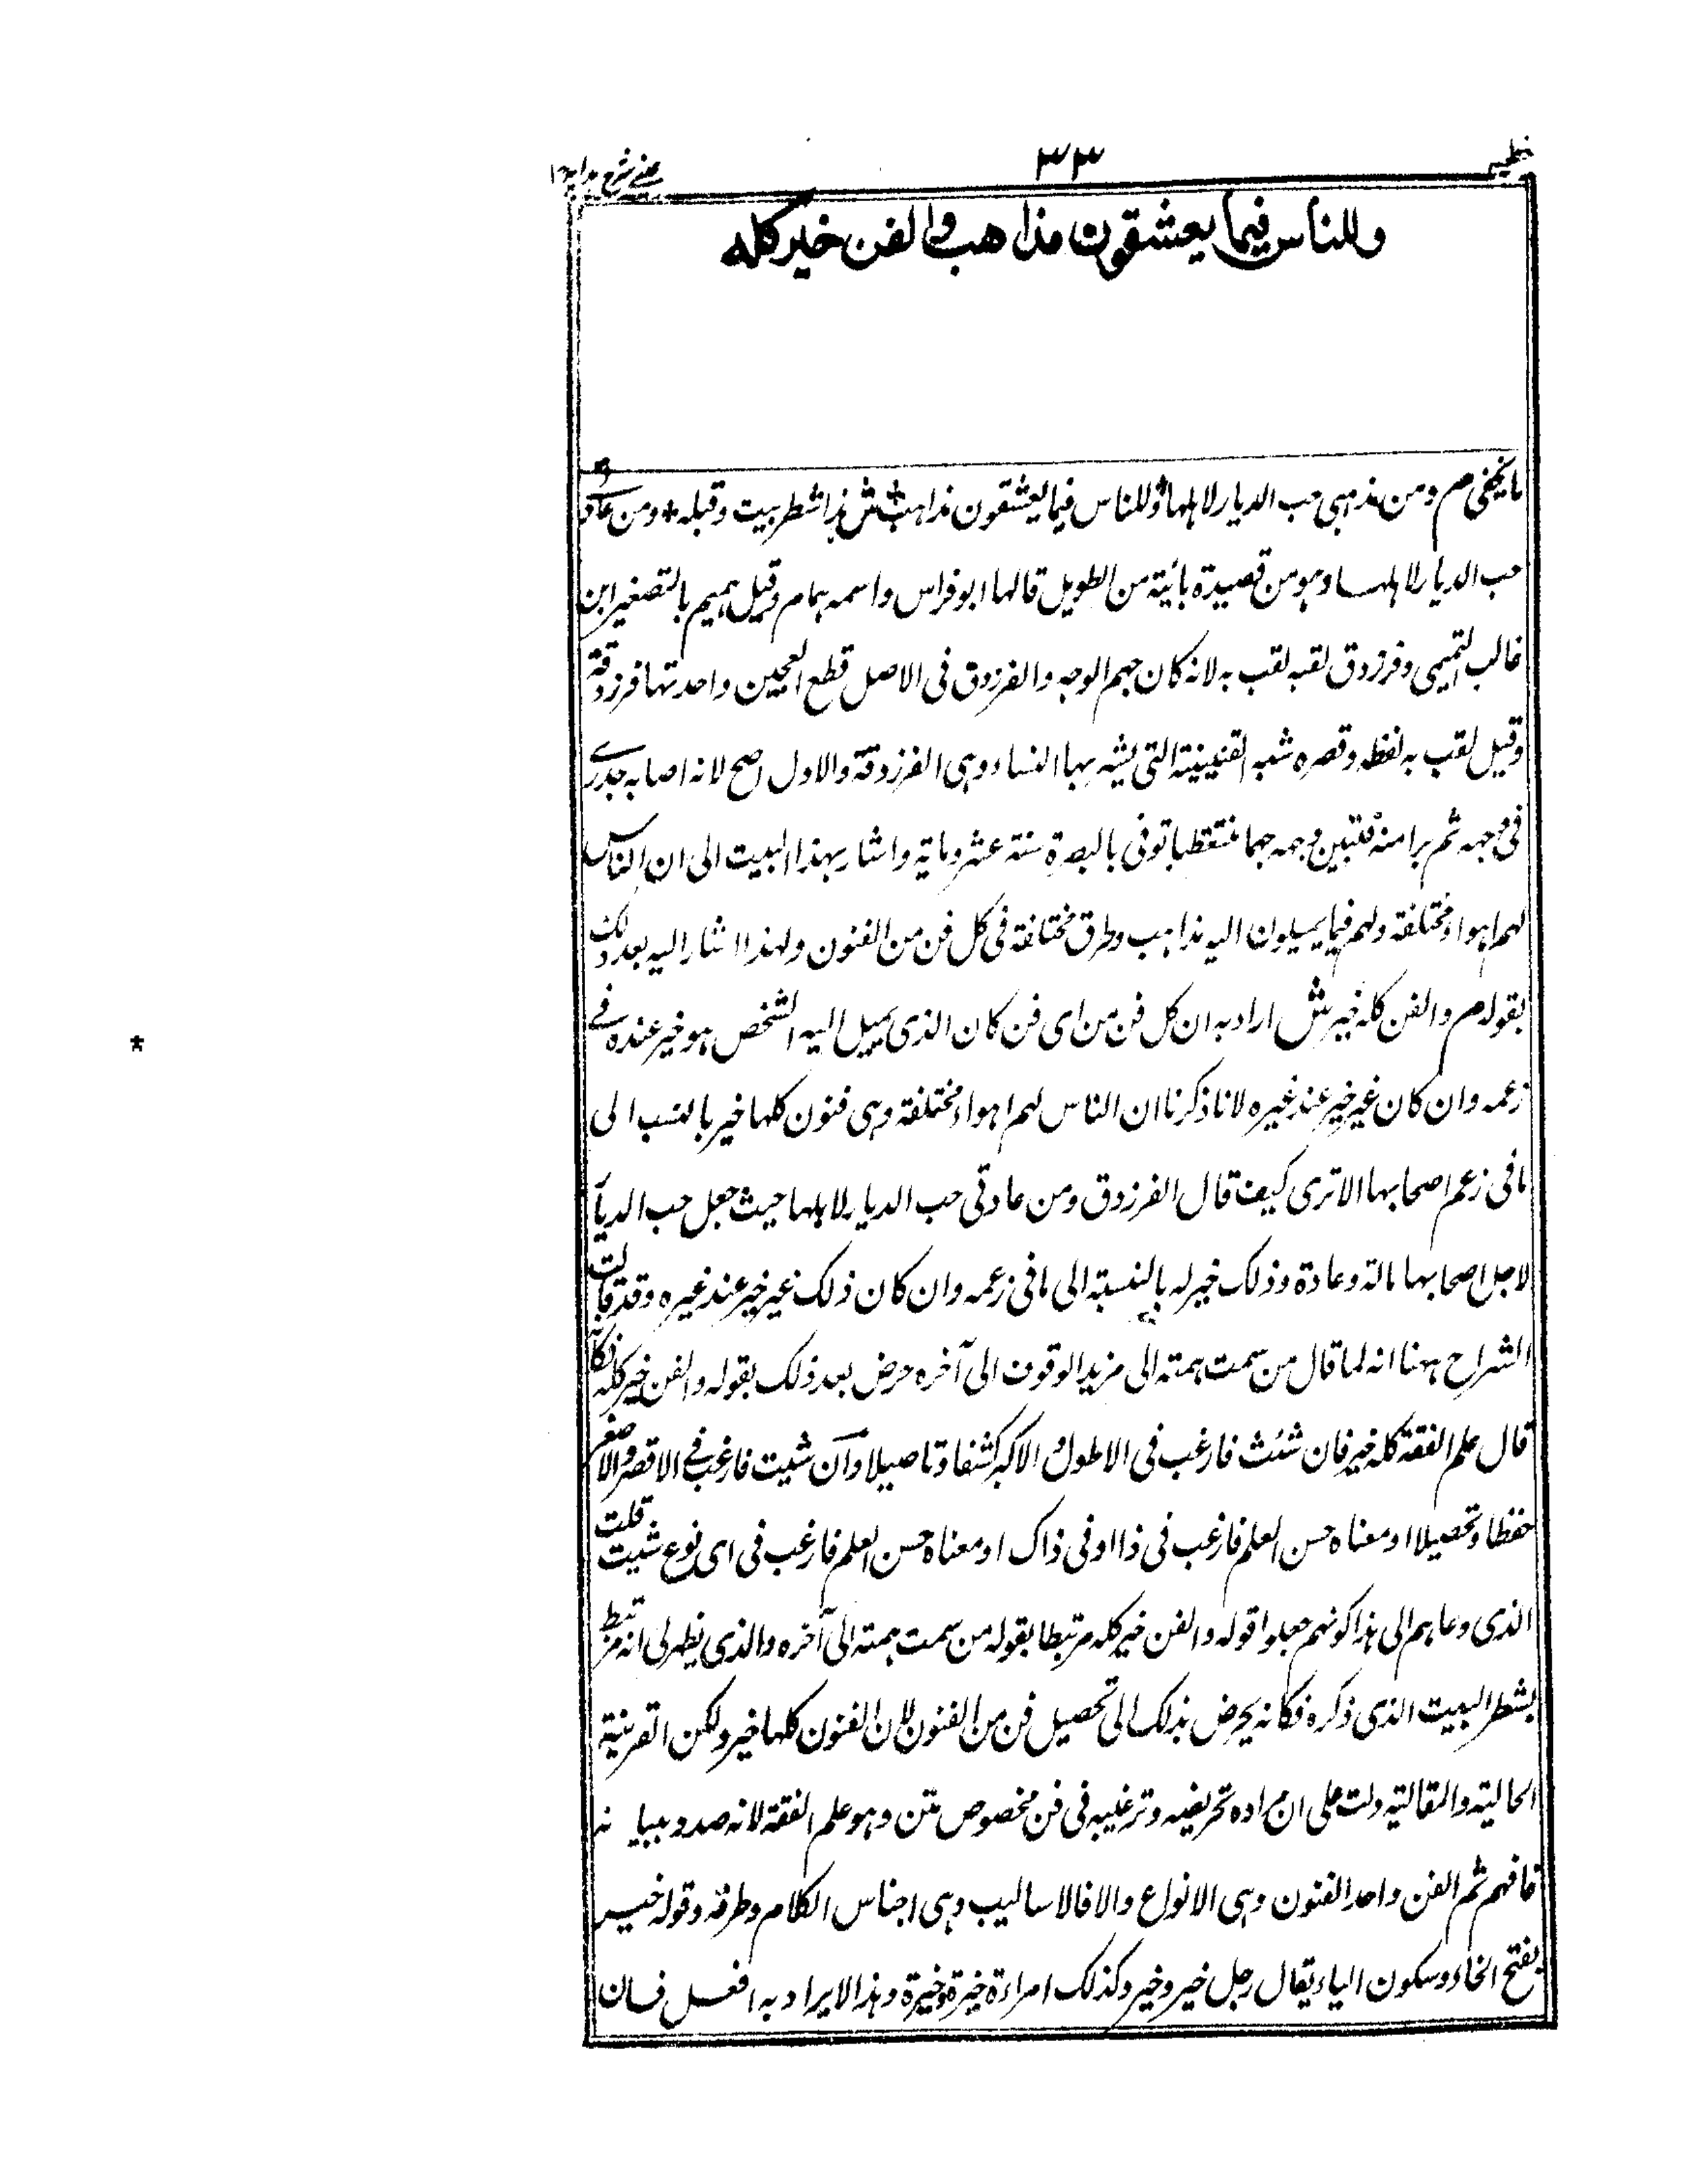 خطبه ٣٣ عینے شرح هدایه ج١
وللناس فيما يعشقون مذاهب والفن خير كله
ما يخفى م ومن مذهبى حب الديار لاهلها وللناس فيما يعشقون مذاهب ش هذا شطر بيت وقبله ومن عادتى
حب الديار لاهلها وهو من قصيدة بائية من الطويل قالها ابو فراس واسمه همام وقيل هميم بالتصغير ابن
غالب التميمى وفرزدق لقبه لقب به لانه كان جهم الوجه والفرزدق فى الاصل قطع العجين واحدتها فرزدقة
وقيل لقب به لغظه وقصره شبه القتيبتة التى يشبه بها النساء وهى الفرزدقة والاول اصح لانه اصابه جدرى
فى وجهه ثم برا منه فتبين وجهه جهما توفى بالبصرة سنة عشر وماية واشار بهذا البيت الى ان الناس
لهم اهواء مختلفة ولهم فيما يميلون اليه مذاهب وطرق مختلفة فى كل فن من الفنون ولهذا اشار اليه بعد ذلك
بقوله م والفن كله خير ش اراد به ان كل فن من اى فن كان الذى يميل اليه الشخص هو خير عنده فے
زعمه وان كان غير خير عند غيره لانا ذكرنا ان الناس لهم اهواء مختلفة وهى فنون كلها خير بالنسب الى
ما فى زعم اصحابها الا ترى كيف قال الفرزدق ومن عادتى حب الديار لاهلها حيث جعل حب الديار
لاجل اصحابها مالة وعادة وذلك خير له بالنسبة الى ما فى زعمه وان كان ذلك غير خير عند غيره وقد قالت
الشراح ههنا انه لما قال من سمت همته الى مزيد الوقوف الى آخره حرض بعد ذلك بقوله والفن خير كله فكانه
قال علم الفقه كله خير فان شئت فارغب فى الاطول والاكبر كشفا وتاصيلا وان شيت فارغب فے الاقصر والاصغر
حفظا وتحصيلا او معناه حسن العلم فارغب فى ذا او فى ذاك او معناه حسن العلم فارغب فى اى نوع شيت قلت
الذى دعاهم الى هذا كونهم جعلوا قوله والفن خير كله مرتبطا بقوله من سمت همته الى آخره والذى يظهر لى انه مرتبط
بشطر البيت الذى ذكره فكانه يحرض بذلك الى تحصيل فن من الفنون لان الفنون كلها خير ولكن القرينة
الحالية والمقالية دلت على ان مراده تحريضه وترغيبه فى فن مخصوص متن وهو علم الفقه لانه صدد ببيانه
فافهم ثم الفن واحد الفنون وهى الانواع والافالاساليب وهى اجناس الكلام وطرقه وقوله خير
بفتح الخاء وسكون الياء يقال رجل خير وخير وكذلك امراءة خيرة وخيرة وهذا لا يراد به افعل فان
*